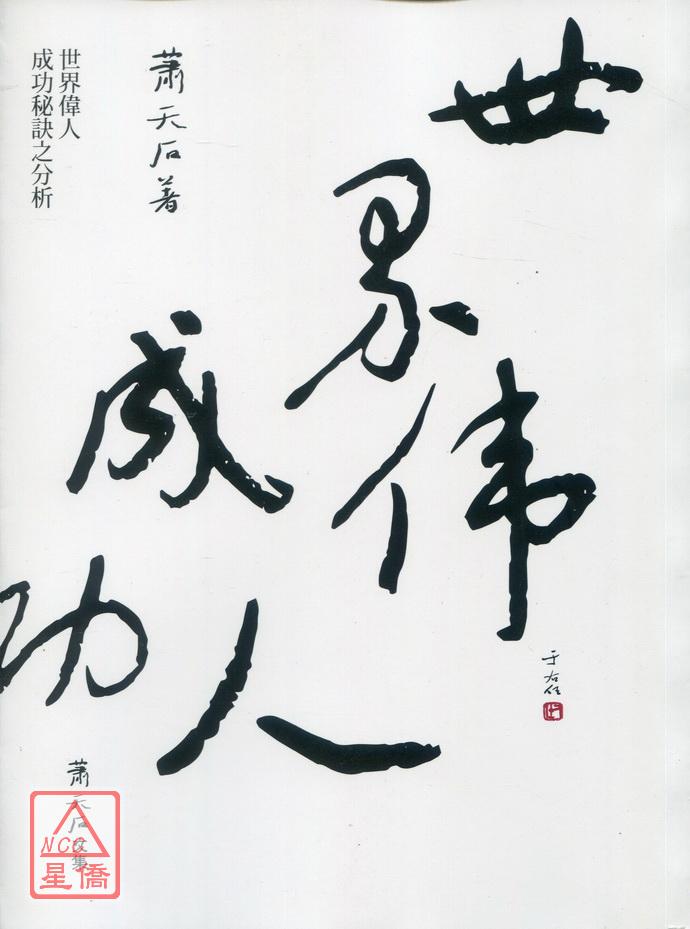 世界伟人
成功
于右任
蕭天石著
世界偉人
成功秘訣之分析
蕭天石文集
NCC
星僑